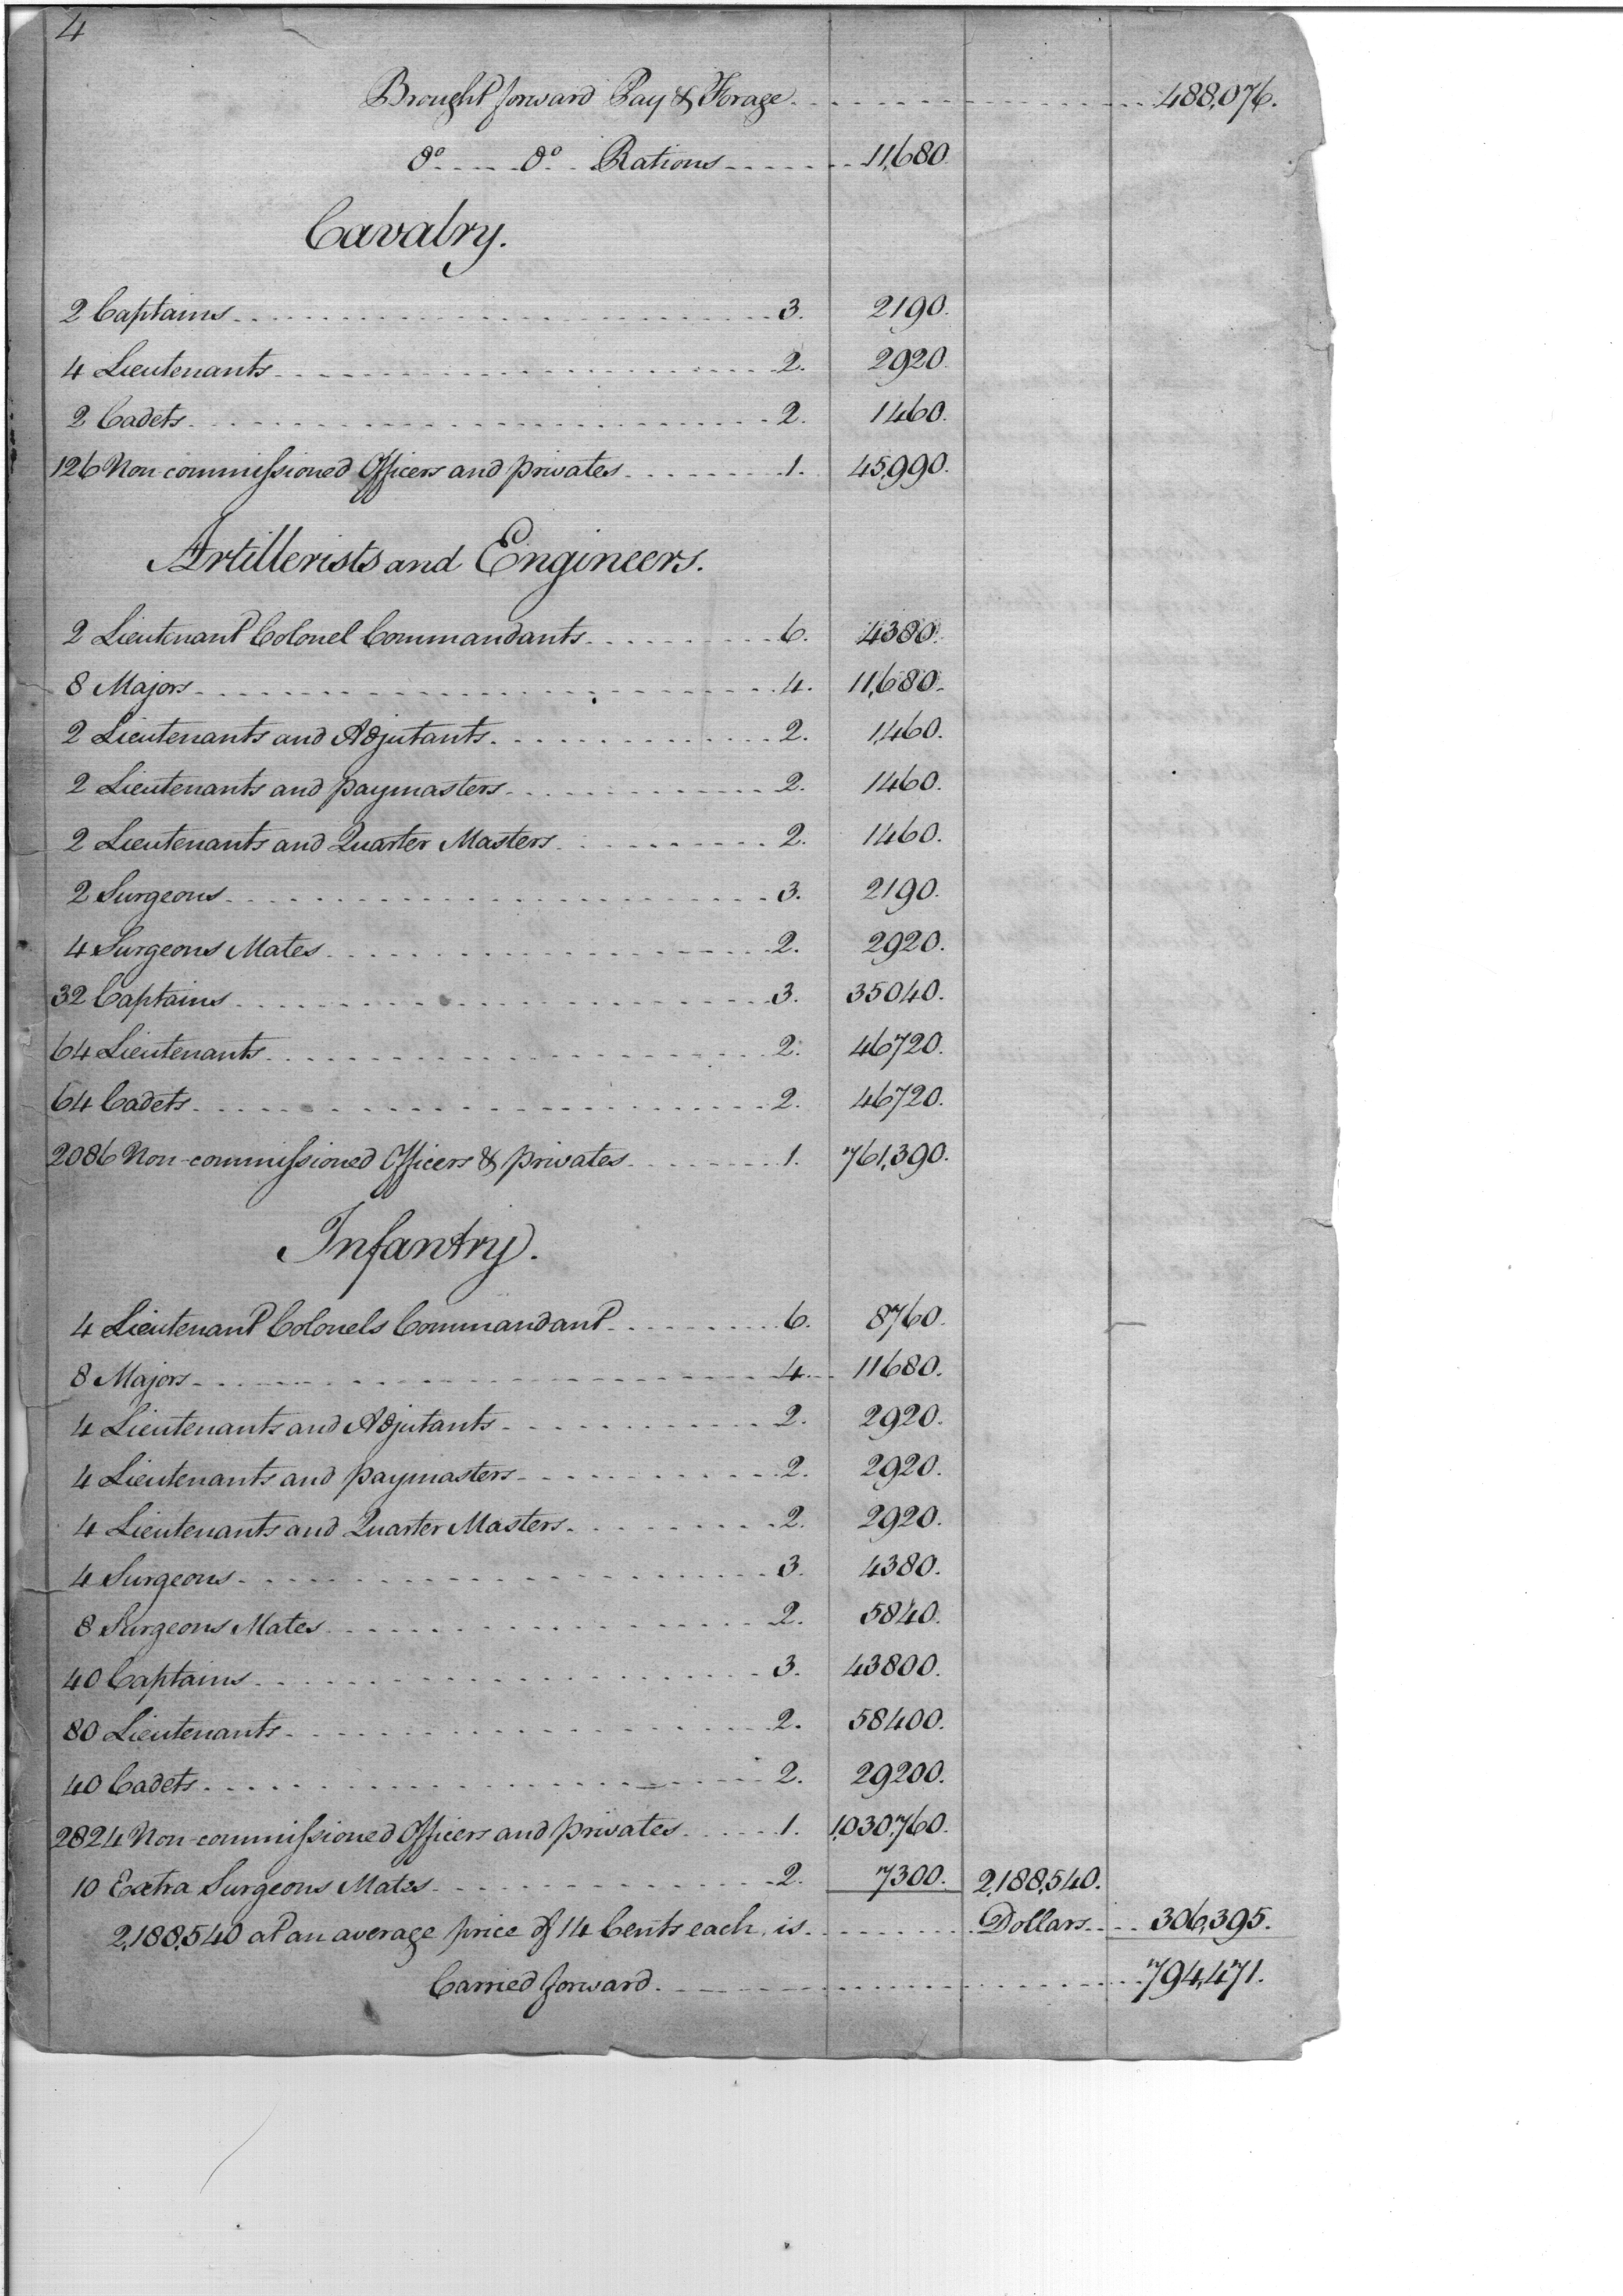 4
Brought forward Pay & Forage 488,076.
Do Do Rations 11,680
Cavalry.
2 Captains 3. 2190.
4 Lieutenants 2. 2920.
2 Cadets 2. 1460.
126 Non commissioned Officers and privates 1. 45,990.
Artillerists and Engineers.
2 Lieutenant Colonel Commandants 6. 4380.
8 Majors 4. 11,680.
2 Lieutenants and Adjutants 2. 1,460.
2 Lieutenants and paymasters 2. 1460.
2 Lieutenants and Quarter Masters 2. 1460.
2 Surgeons 3. 2190.
4 Surgeons Mates 2. 2920.
32 Captains 3. 35040.
64 Lieutenants 2. 46720.
64 Cadets 2. 46720.
2086 Non-commissioned Officers & privates 1. 761,390.
Infantry.
4 Lieutenant Colonels Commandant 6. 8760.
8 Majors 4. 11680.
4 Lieutenants and Adjutants 2. 2920.
4 Lieutenants and paymasters 2. 2920.
4 Lieutenants and Quarter Masters 2. 2920.
4 Surgeons 3. 4380.
8 Surgeons Mates 2. 5840.
40 Captains 3. 43800.
80 Lieutenants 2. 58400.
40 Cadets 2. 29200.
2824 Non-commissioned Officers and privates 1. 1,030,760.
10 Extra Surgeons Mates 2. 7300. 2,188,540.
2,188,540 at an average price of 14 Cents each, is Dollars 306,395.
Carried forward 794,471.